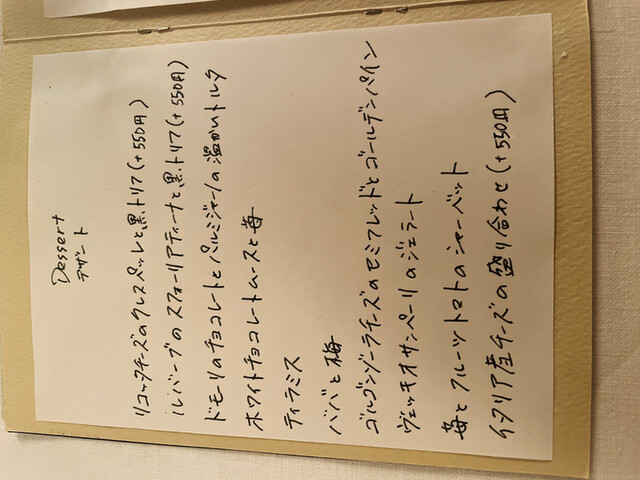 Dessert
デザート
リコッタチーズのクレスペッレと黒トリフ(+550円)
ルバーブのスフォーリアティーナと黒トリフ(+550円)
ドモーリのチョコレートとパルミジャーノの温かいトルタ
ホワイトチョコレートムースと苺
ティラミス
ババと梅
ゴルゴンゾーラチーズのセミフレッドとゴールデンパイン
ヴェッキオサンペーリのジェラート
苺とフルーツトマトのシャーベット
イタリア産チーズの盛り合わせ(+550円)